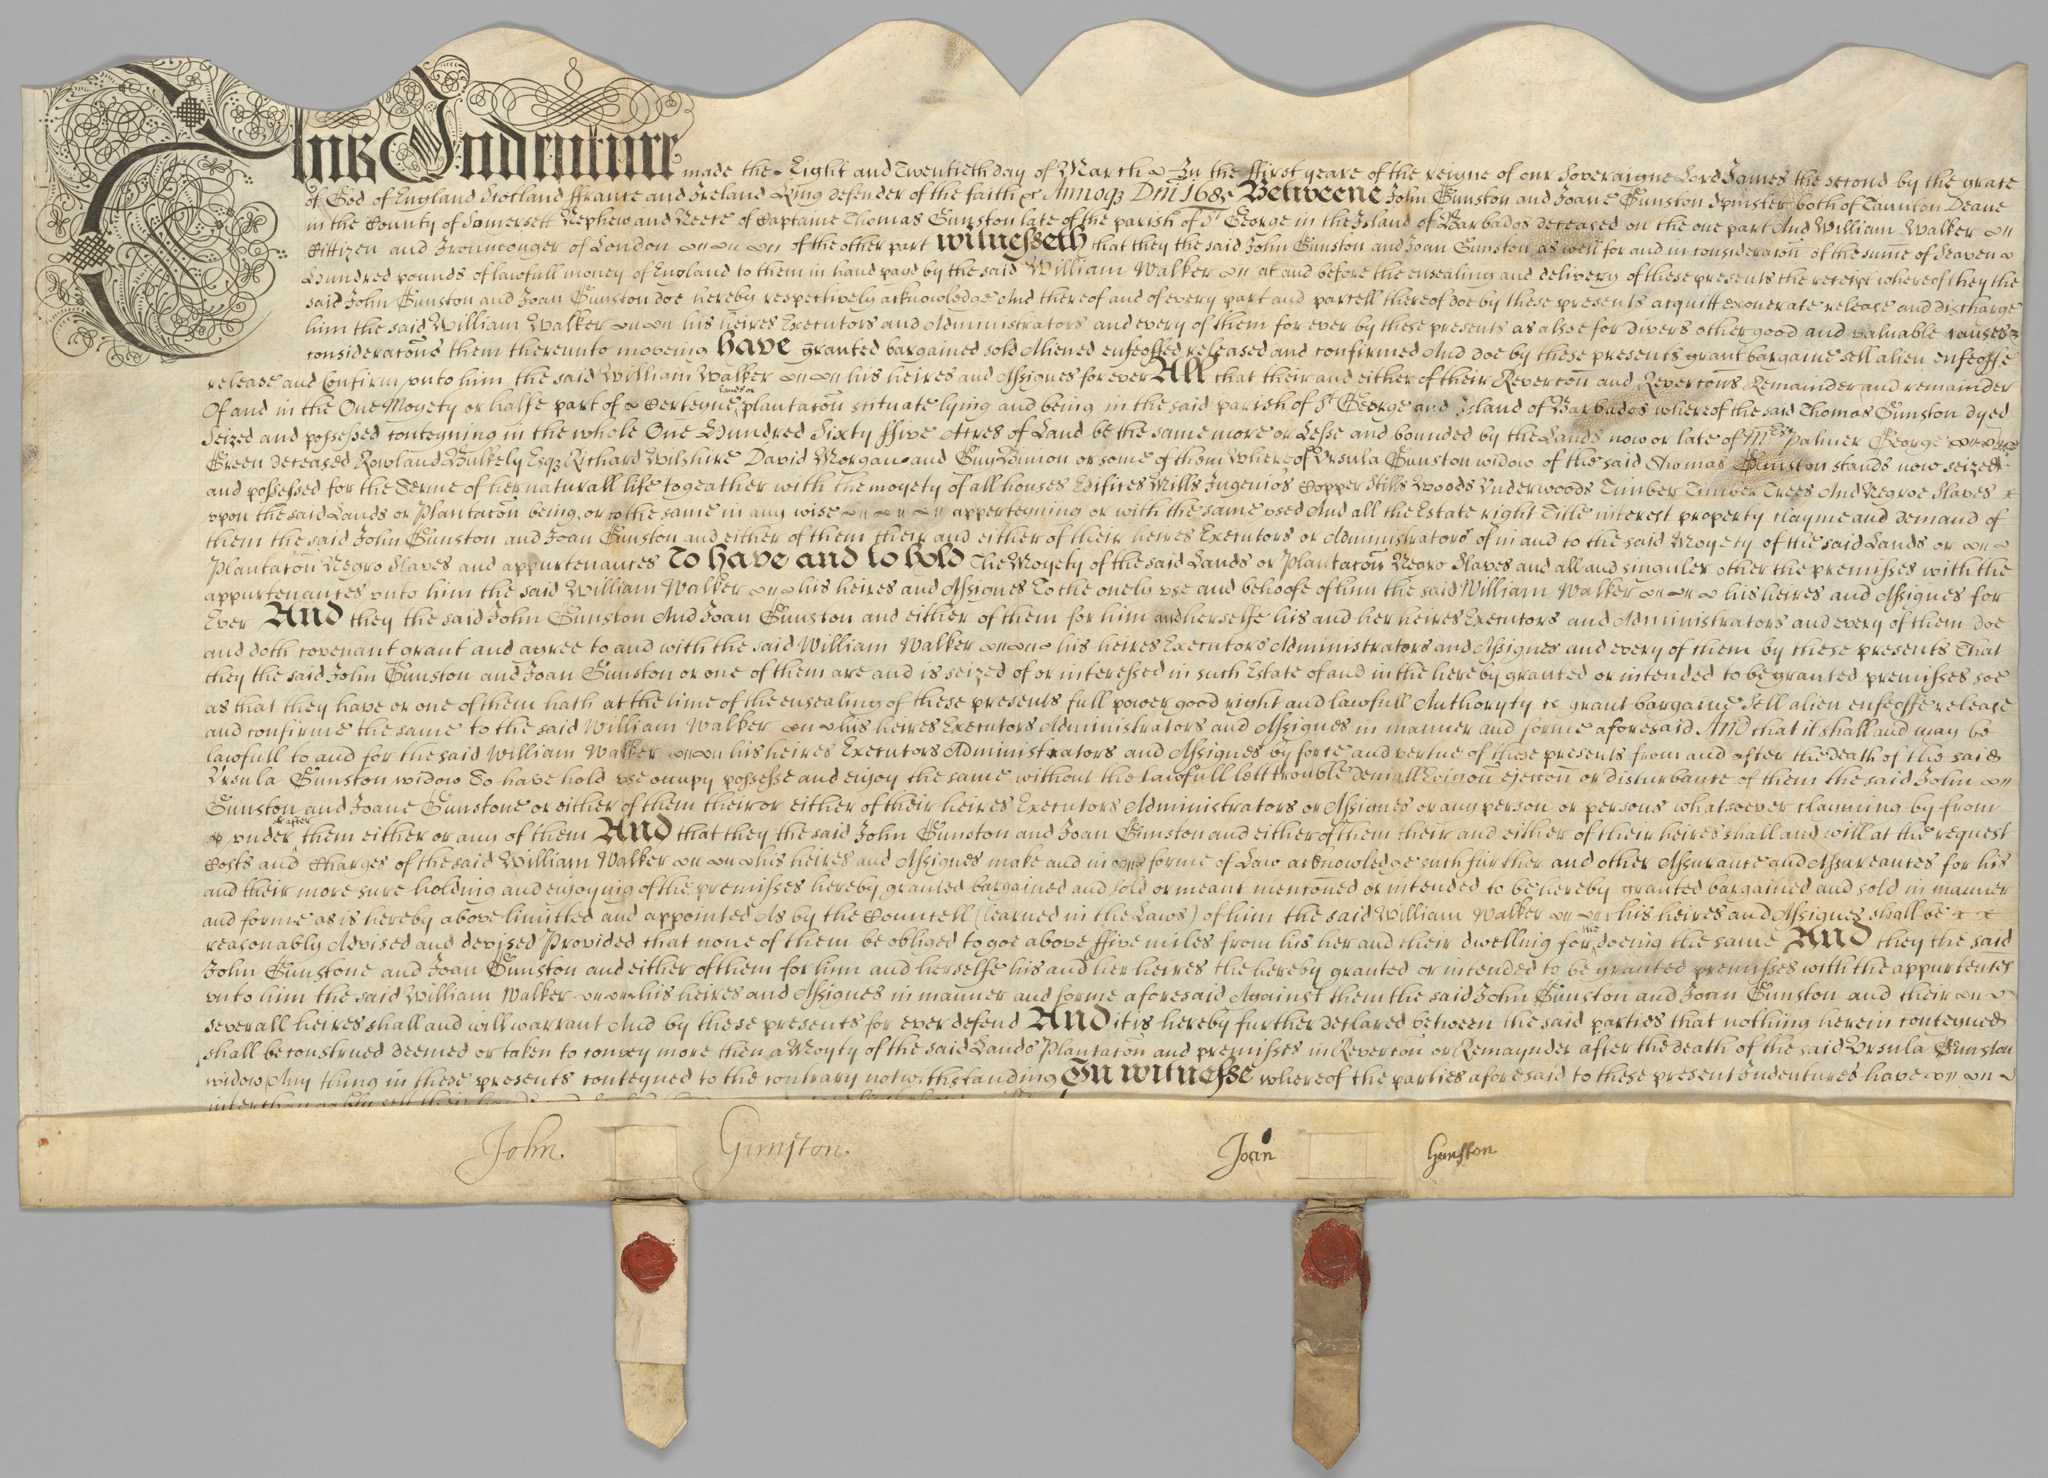 This Indenture made the Eight and Twentieth day of March In the ffirst yeare of the reigne of our Soveraigne Lord James the second by the grace
of God of England Scotland ffrance and Ireland King defender of the faith &c Annoq Dni 1685 Betweene John Gunston and Joane Gunston Spinster both of Taunton Deane
in the County of Somersett Nephew and Neece of Captaine Thomas Gunston late of the parish of St George in the Island of Barbados deceased on the one part And William Walker
Cittizen and Ironmonger of London of the other part Witnesseth that they the said John Gunston and Joan Gunston as well for and in consideracōn of the summe of Seaven
Hundred pounds of lawfull money of England to them in hand payd by the said William Walker at and before the ensealing and delivery of these presents the receipt whereof they the
said John Gunston and Joan Gunston doe hereby respectively acknowledge And thereof and of every part and parcell thereof doe by these presents acquitt exonerate release and discharge
him the said William Walker his heires Executors and Administrators and every of them for ever by these presents as alsoe for divers other good and valuable causes &
consideracōns them thereunto moveing Have granted bargained sold Aliened enfeoffed released and confirmed And doe by these presents grant bargaine sell alien enfeoffe
release and Confirm vnto him the said William Walker his heires and Assignes for ever All that their and either of their Revercōn and Revercōns Remainder and remainder
Of and in the One Moyety or halfe part of Certeyne lands or plantacōn scituate lying and being in the said parish of St George and Island of Barbados whereof the said Thomas Gunston dyed
Seized and possessed conteyning in the whole One Hundred Sixty ffive Acres of Land be the same more or Lesse and bounded by the Lands now or late of Palmer George
Green deceased Rowland Bulkely Esq Richard Wilshire David Morgan and Guy or some of them Whereof Vrsula Gunston widow of the said Thomas Gunston stands now seized
and possessed for the Terme of her naturall life togeather with the moyety of all houses Edifices Mills Ingenios Copper Stills Woods Vnderwoods Timber Timber Trees And Negroe Slaves
vpon the said Lands or Plantacōn being, or to the same in any wise apperteyning or with the same vsed And all the Estate right Title interest property clayme and demand of
them the said John Gunston and Joan Gunston and either of them their and either of their heires Executors or Administrators of in and to the said Moyety of the said Lands or
Plantacōn Negro Slaves and appurtenances To have and to hold The Moyety of the said Lands or Plantacōn Negro Slaves and all and singuler other the premisses with the
appurtenances vnto him the said William Walker his heires and Assignes To the onely vse and behoofe of him the said William Walker his heires and Assignes for
Ever And they the said John Gunston And Joan Gunston and either of them for him and herselfe his and her heires Executors and Administrators and every of them doe
and doth covenant grant and agree to and with the said William Walker his heires Executors Administrators and Assignes and every of them by these presents That
they the said John Gunston and Joan Gunston or one of them are and is seized of or interessed in such Estate of and in the hereby granted or intended to be granted premisses soe
as that they have or one of them hath at the time of the ensealing of these presents full power good right and lawfull Authoryty to grant bargaine Sell alien enfeoffe release
and confirme the same to the said William Walker his heires Executors Administrators and Assignes in manner and forme aforesaid And that it shall and may be
lawfull to and for the said William Walker his heires Executors Administrators and Assignes by force and vertue of these presents from and after the death of the said
Vrsula Gunston widow To have hold vse occupy possesse and enjoy the same without the lawfull lett trouble deniall Eviccōn ejeccōn or disturbance of them the said John
Gunston and Joane Gunstone or either of them their or either of their heires Executors Administrators or Assignes or any person or persons whatsoever clayming by from
or after vnder them either or any of them And that they the said John Gunston and Joan Gunston and either of them their and either of their heires shall and will at the request
Costs and Charges of the said William Walker his heires and Assignes make and in forme of Law acknowledge such further and other Assurance and Assureances for his
and their more sure holding and enjoying of the premisses hereby granted bargained and sold or meant mencōned or intended to be hereby granted bargained and sold in manner
and forme as is hereby above limitted and appointed As by the Councell (learned in the Laws) of him the said William Walker his heires and Assignes shall be
reasonably Advised and devised Provided that none of them be obliged to goe above ffive miles from his her and their dwelling for the doeing the same And they the said
John Gunstone and Joan Gunston and either of them for him and herselfe his and her heires the hereby granted or intended to be granted premisses with the appurtences
vnto him the said William Walker his heires and Assignes in manner and forme aforesaid Against them the said John Gunston and Joan Gunston and their
severall heires shall and will warrant And by these presents for ever defend And it is hereby further declared between the said parties that nothing herein conteyned
shall be construed deemed or taken to convey more then a Moyty of the said Lands Plantacōn and premisses in Revercōn or Remaynder after the death of the said Vrsula Gunston
widow Any thing in these presents conteyned to the contrary notwithstanding In witnesse whereof the parties aforesaid to these present Indentures have
John Gunston.
Joan Gunston